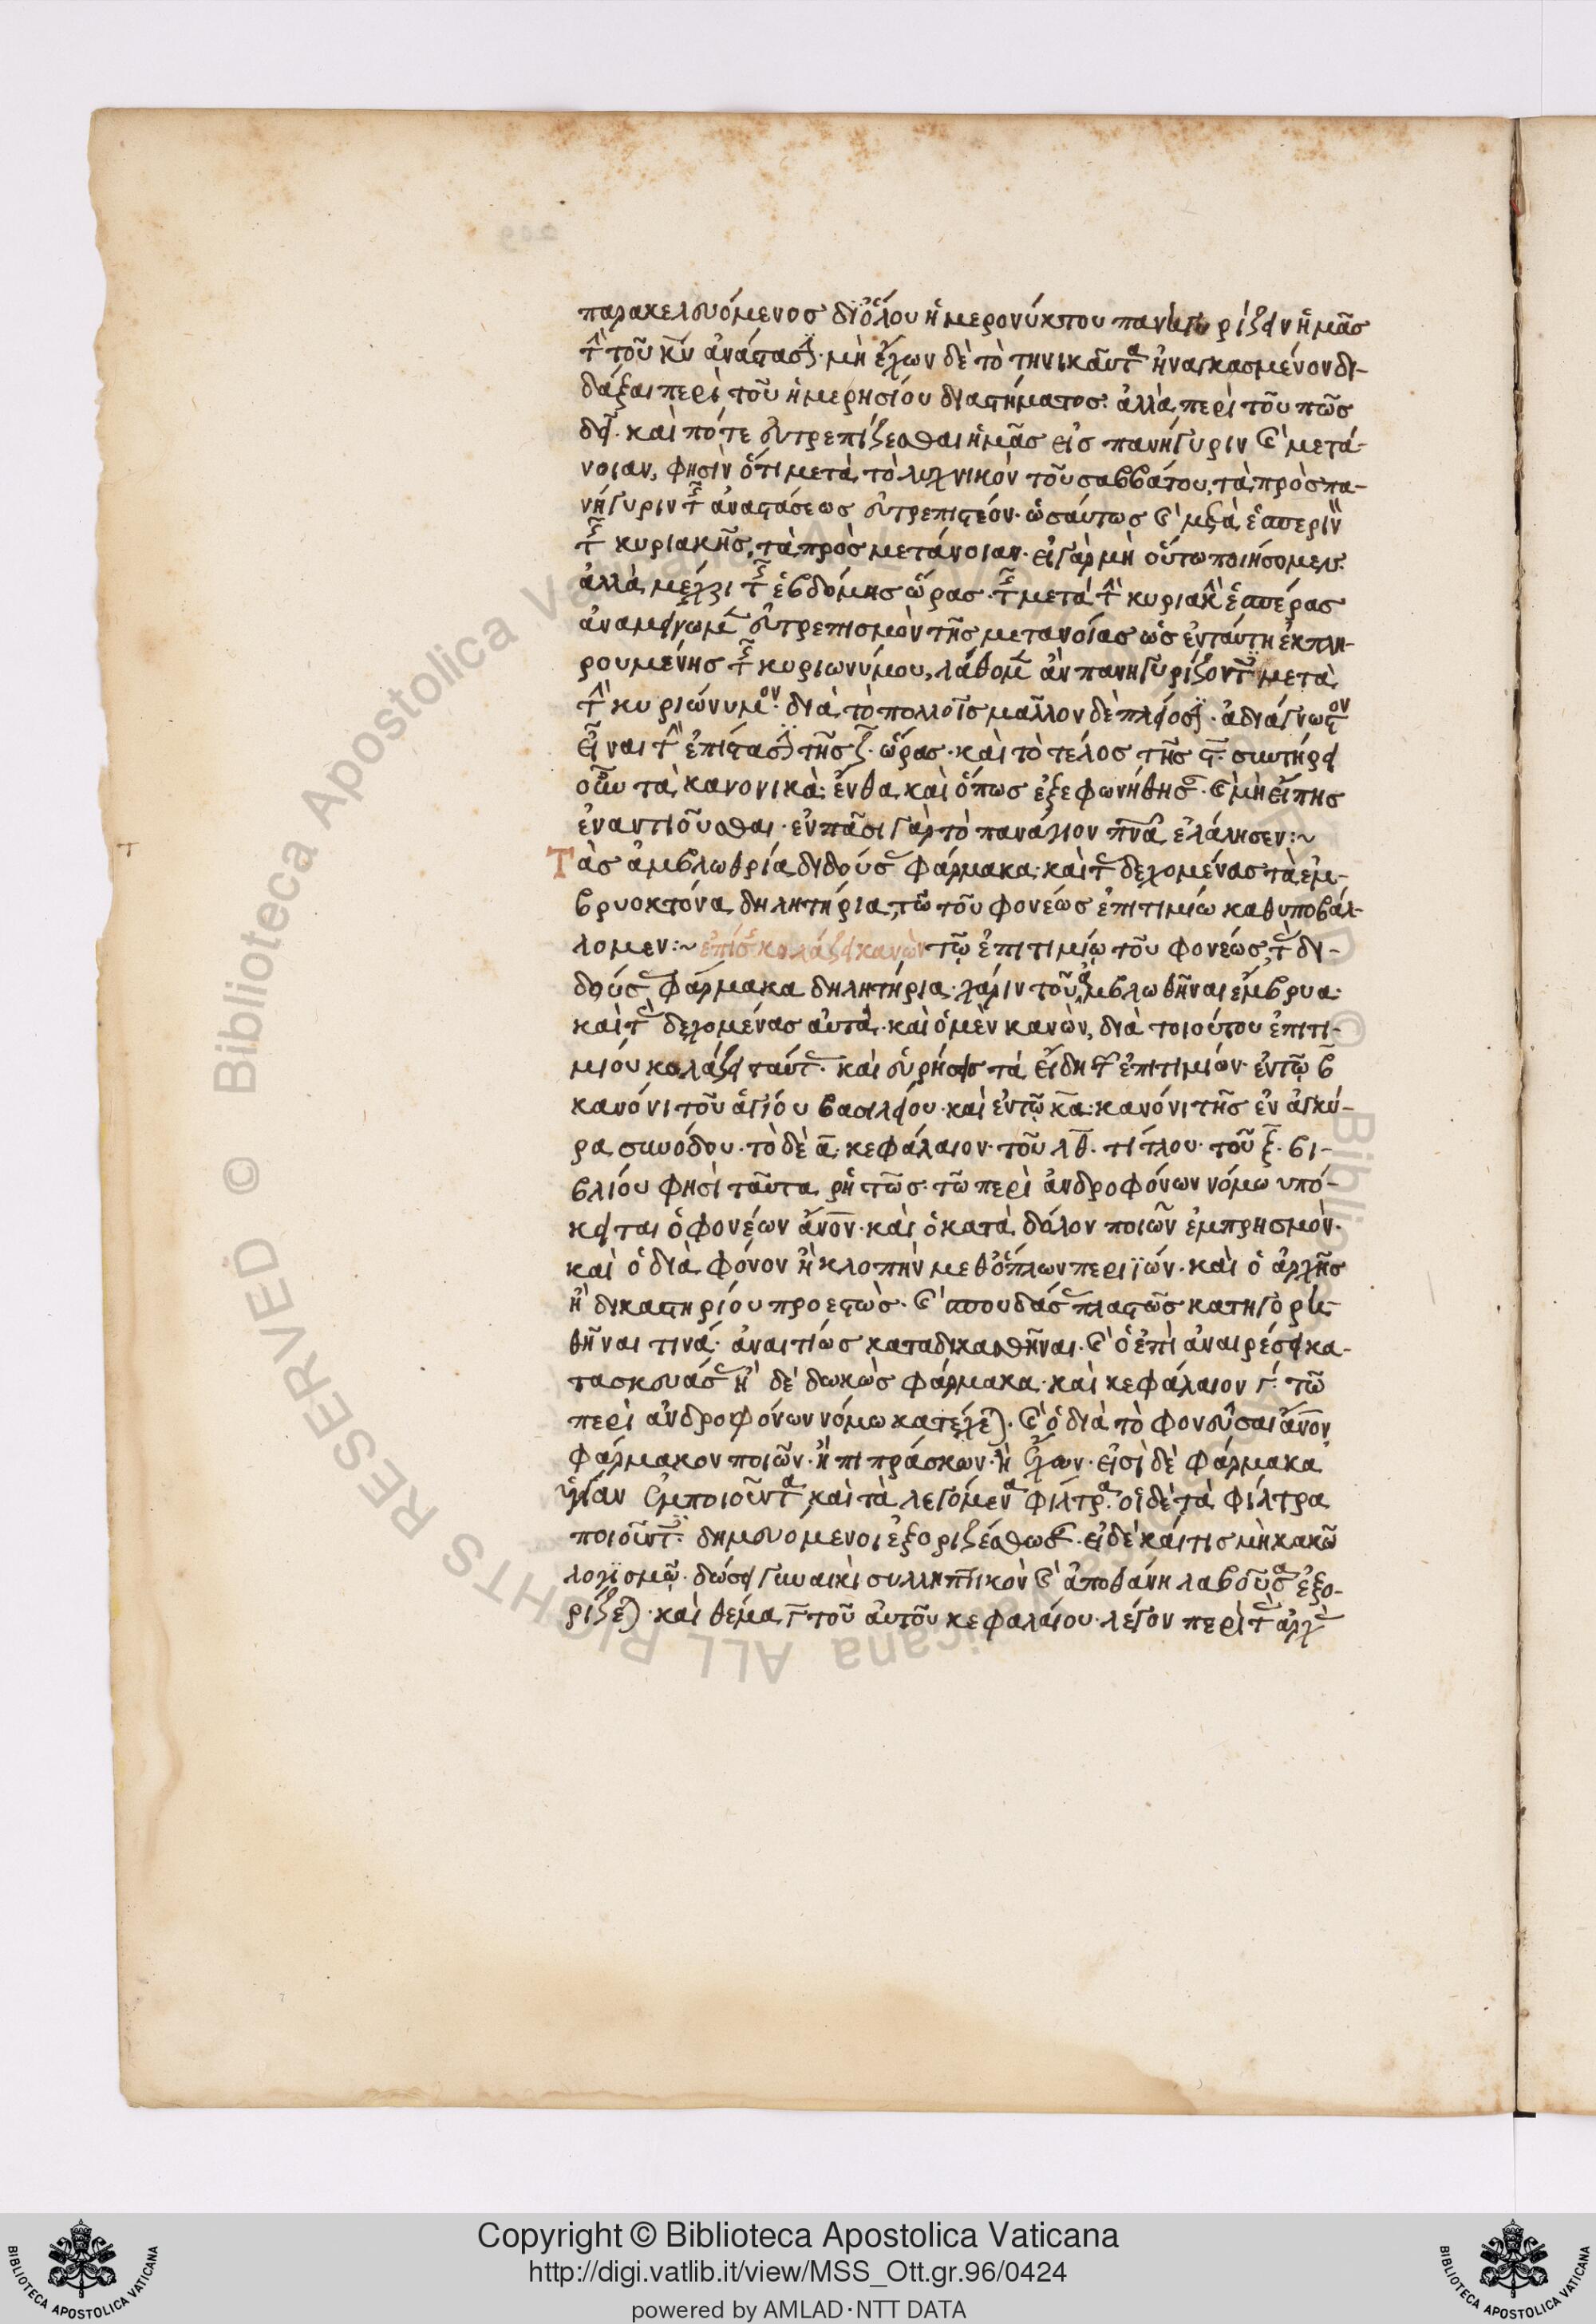 παρακελευόμενος δι' ὅλου ἡμερονύκτου πανηγυρίζειν ἡμᾶς
τὴν τοῦ κυ ἀνάστασιν· μὴ ἔχων δὲ τὸ τηνικαῦτα ἠναγκασμένον δι-
δάξαι περὶ τοῦ ἡμερησίου διαστήματος· ἀλλὰ περὶ τοῦ πῶς
δεῖ· καὶ πότε εὐτρεπίζεσθαι ἡμᾶς εἰς πανήγυριν καὶ μετά-
νοιαν, φησὶν ὅτι μετὰ τὸ λυχνικὸν τοῦ σαββάτου, τὰ πρὸς πα-
νήγυριν τῆς ἀναστάσεως εὐτρεπιστέον· ὡσαύτως καὶ μετὰ ἑσπερινὸν
τῆς κυριακῆς, τὰ πρὸς μετάνοιαν· εἰ γὰρ μὴ οὕτω ποιήσομεν·
ἀλλὰ μέχρι τῆς ἑβδόμης ὥρας τῆς μετὰ τὴν κυριακὴν ἑσπέρας
ἀναμείνωμεν εὐτρεπισμὸν τῆς μετανοίας ὡς ἐν ταύτῃ ἐκπλη-
ρουμένης τῆς κυριωνύμου, λάθομεν ἂν πανηγυρίζοντες μετὰ
τὴν κυριώνυμον· διὰ τὸ πολλοῖς μᾶλλον δὲ πλείοσιν· ἀδιάγνωστον
εἶναι τὴν ἐπίστασιν τῆς ζ· ὥρας· καὶ τὸ τέλος τῆς ϛ· συντήρει
οὖν τὰ κανονικὰ· ἔνθα καὶ ὅπως ἐξεφωνήθησαν· καὶ μὴ εἴπῃς
ἐναντιοῦσθαι· ἐν πᾶσι γὰρ τὸ πανάγιον πνα ἐλάλησεν:~
Τὰς ἀμβλωθρία διδούσας φάρμακα· καὶ τὰς δεχομένας τὰ ἐμ-
βρυοκτόνα δηλητήρια, τῶ τοῦ φονέως ἐπιτιμίω καθυποβάλ-
λομεν:~ ἐπίσης κολάζει κανὼν τῷ ἐπιτιμίῳ τοῦ φονέως, τὰς δι-
δούσας φάρμακα δηλητήρια· χάριν τοῦ ἀμβλωθῆναι ἔμβρυα·
καὶ τὰς δεχομένας αὐτά· καὶ ὁ μὲν κανὼν, διὰ τοιούτου ἐπιτι-
μίου κολάζει ταύτας· καὶ εὑρήσεις τὰ εἴδη τῶν ἐπιτιμίων· ἐν τῷ β
κανόνι τοῦ ἁγίου βασιλείου· καὶ ἐν τῷ κα· κανόνι τῆς ἐν ἀγκύ-
ρα συνόδου· τὸ δὲ α· κεφάλαιον· τοῦ λθ· τίτλου· τοῦ ξ· βι-
βλίου φησὶ ταῦτα ῥητῶς· τῶ περὶ ἀνδροφόνων νόμω υπό-
κειται ὁ φονέων ἄνον· καὶ ὁ κατὰ δόλον ποιῶν ἐμπρησμὸν·
καὶ ὁ διὰ φόνον ἢ κλοπὴν μεθ' ὅπλων περιϊών· καὶ ὁ ἀρχῆς
ἢ δικαστηρίου προεστὼς· καὶ σπουδάσας πλαστῶς κατηγορη-
θῆναι τινά· ἀναιτίως καταδικασθῆναι· καὶ ὁ ἐπὶ ἀναιρέσει κα-
τασκευάσας ἢ δὲ δωκὼς φάρμακα· καὶ κεφάλαιον γ· τῶ
περὶ ἀνδροφόνων νόμω κατέχεται· καὶ ὁ διὰ τὸ φονεῦσαι ἄνον
φάρμακον ποιῶν· ἢ πιπράσκων· ἢ ἔχων· εἰσὶ δὲ φάρμακα
ἐμποιοῦντα καὶ τὰ λεγόμενα φίλτρα· οἱ δὲ τὰ φίλτρα
ποιοῦντες· δημευόμενοι ἐξοριζέσθωσαν· εἰ δὲ καί τις μὴ κακῶ
λογισμῷ· δώσει γυναικὶ συλληπτικὸν καὶ ἀποθάνη λαβοῦσα ἐξο-
ρίζεται· καὶ θέμα γ τοῦ ἀυτοῦ κεφαλαίου· λέγον περὶ τὰς ἀρχὰς